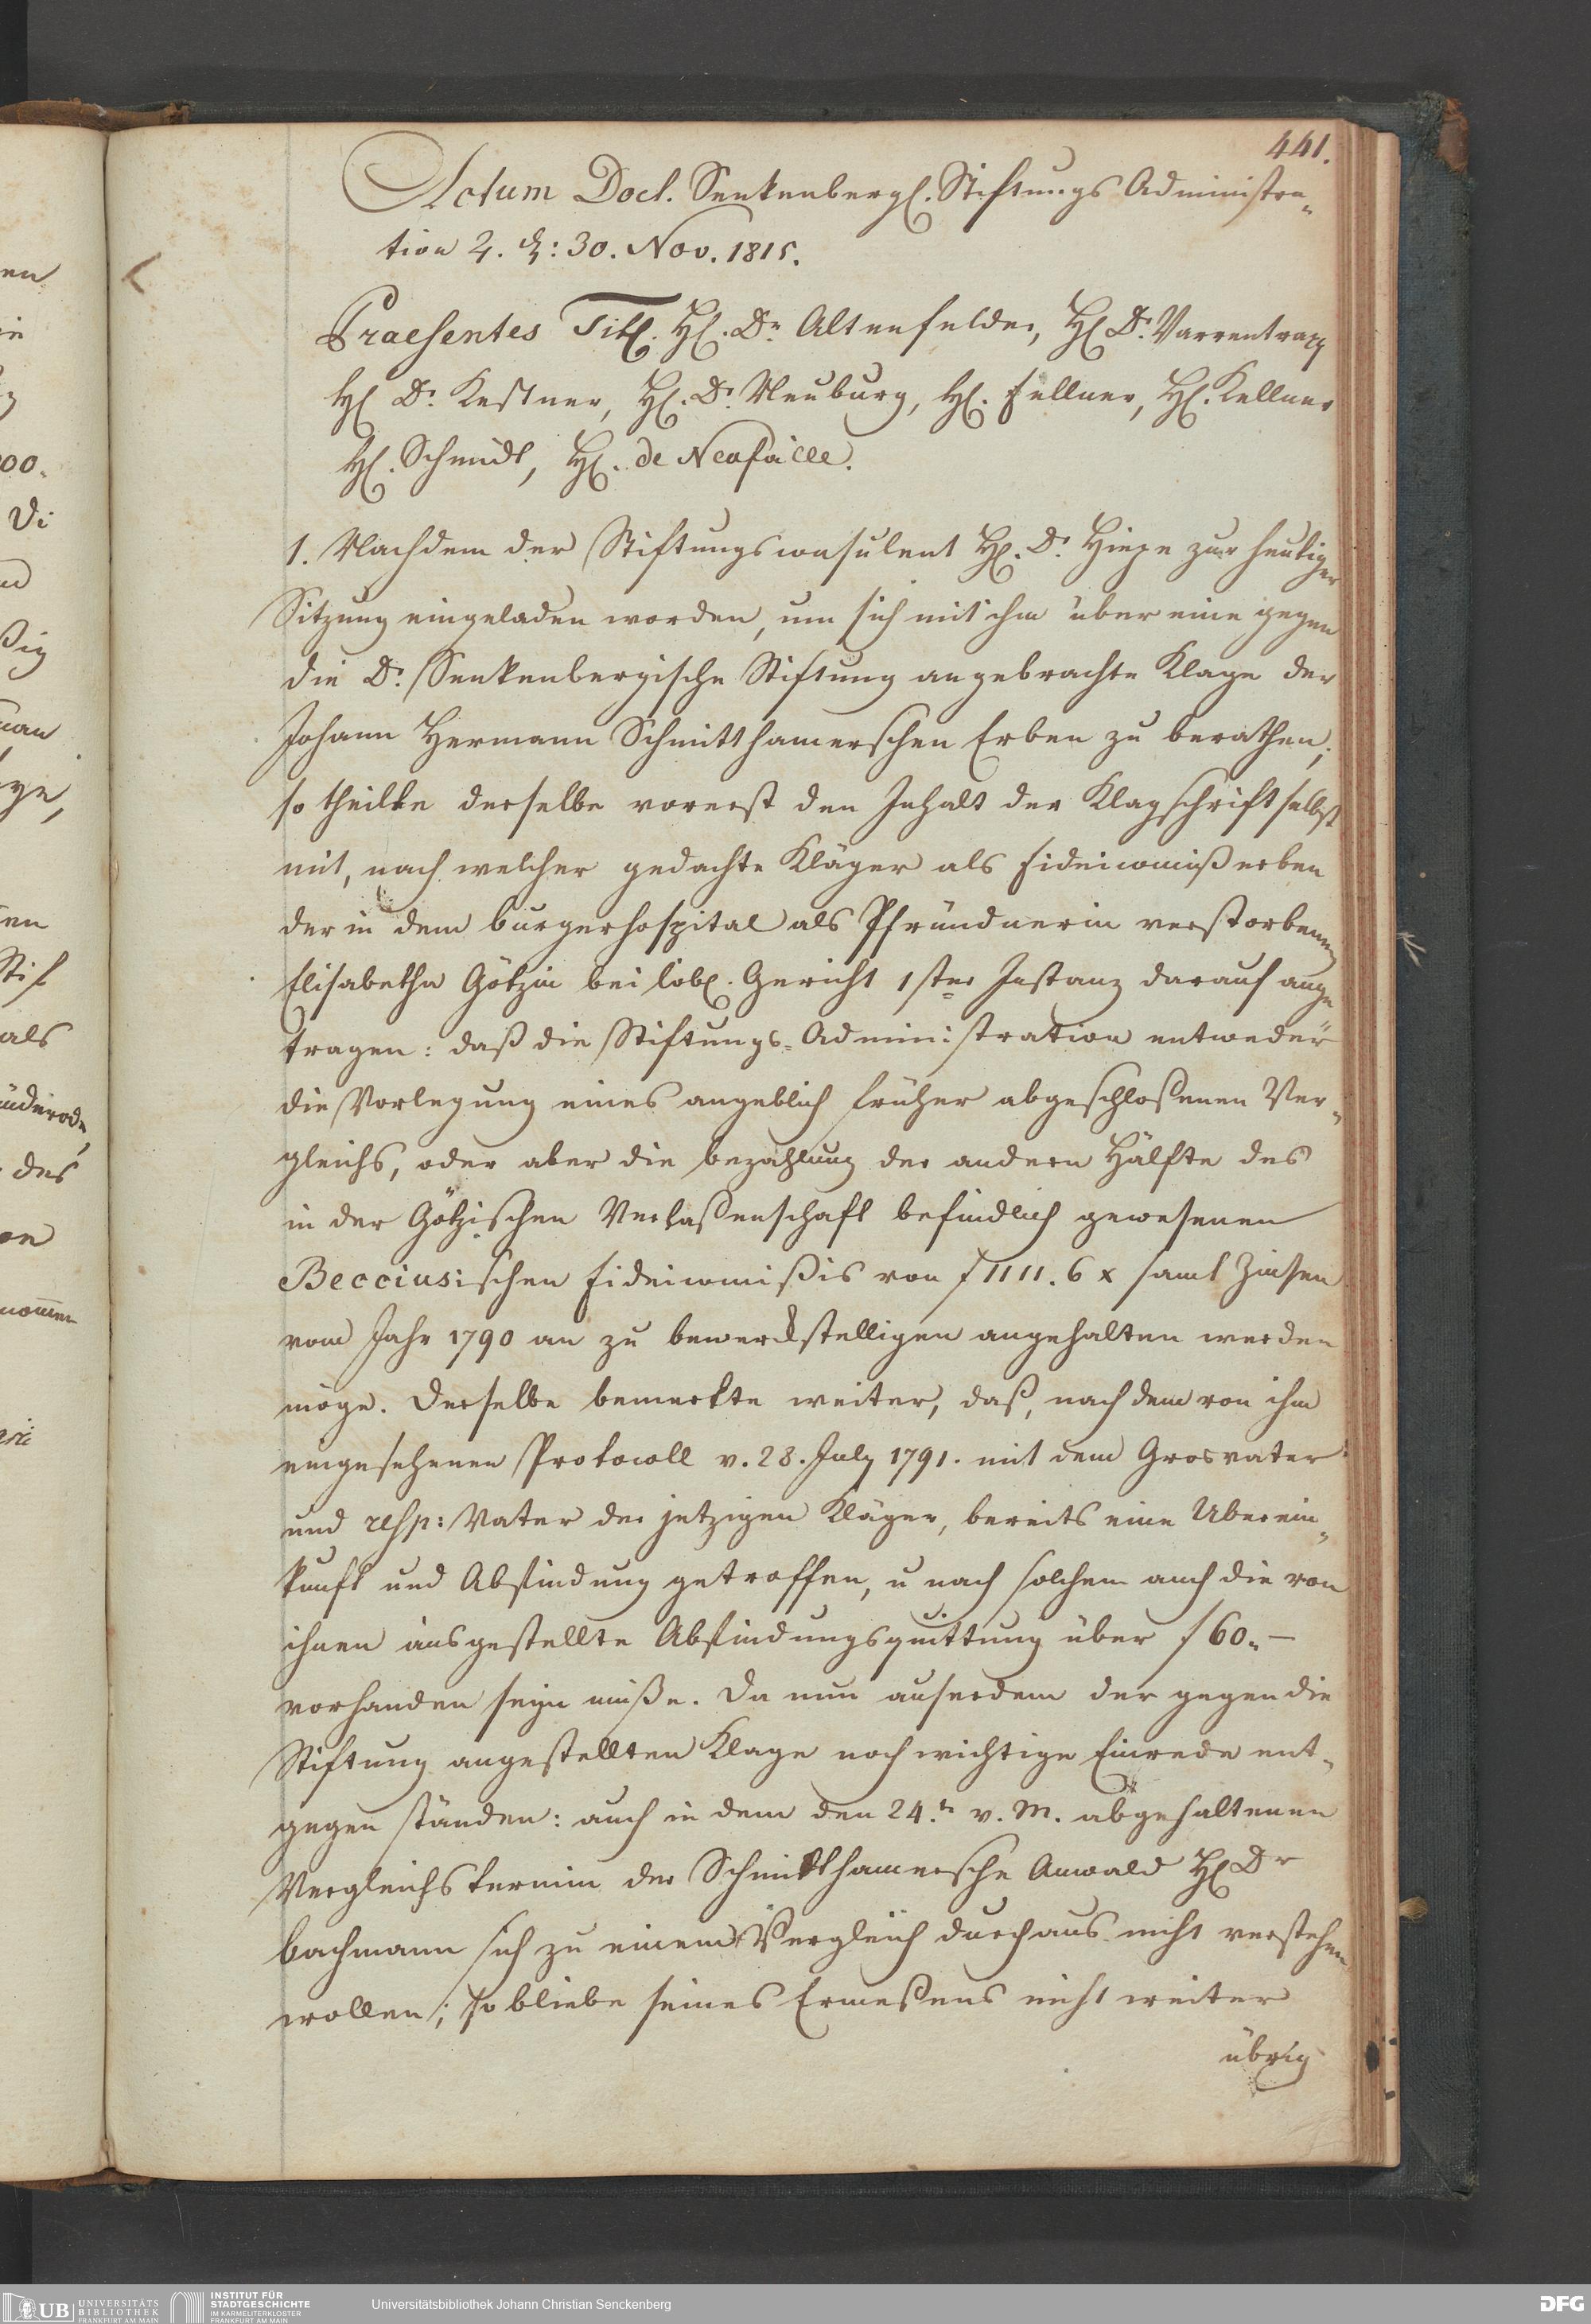 441.
Actum Doct. Senkenbergl. Stiftungs Administra-
tion 2. d: 30. Nov. 1815.
Praesentes Titl. Hl. Dr. Altenfelder, Hl Dr. Varrentrapp
Hl Dr. Kestner, Hl. Dr. Neuburg, Hl. Fellner, Hl. Kellner
Hl. Schmidt, Hl. de Neufville.
1. Nachdem der Stiftungsconsulent Hl. Dr. Hiepe zur heutigen
Sitzung eingeladen worden, um sich mit ihm über eine gegen
die Dr. Senkenbergische Stiftung angebrachte Klage der
Johann Hermann Schmitthamerschen Erben zu berathen;
so theilte derselbe vorerst den Inhalt der Klagschrift selbst
mit, nach welcher gedachte Kläger als Fideicomißerben
der in dem Burgerhospital als Pfründnerin verstorbenen
Elisabetha Götzin bei löbl. Gericht 1ster Instanz darauf ange
tragen: daß die Stiftungs-Administration entweder
die Vorlegung eines angeblich früher abgeschloßenen Ver-
gleichs, oder aber die Bezahlung der andern Hälfte des
in der Götzischen Verlaßenschaft befindlich gewesenen
Becciusischen Fideicomißis von f 1111. 6 x samt Zinsen
vom Jahr 1790 an zu bewerckstelligen angehalten werden
möge. Derselbe bemerkte weiter, daß, nach dem von ihm
eingesehenen Protocoll v. 28. July 1791. mit dem Grosvater
und resp: Vater der jetzigen Kläger, bereits eine Uberein-
kunft und Abfindung getroffen, u nach solchem auch die von
ihnen ausgestellte Abfindungsquittung über f 60.-
vorhanden seyn müße. Da nun auserdem der gegen die
Stiftung angestellten Klage noch wichtige Einrede ent-
gegen ständen: auch in dem den 24.tn v. M. abgehaltenen
Vergleichstermin der Schmitthamersche Anwald Hl Dr
Bachmann sich zu einem Vergleich durchaus nicht verstehen
wollen; so bliebe seines Ermeßens nicht weiter
übrig
UB UNIVERSITÄTS
BIBLIOTHEK
FRANKFURT AM MAIN
INSTITUT FÜR
STADTGESCHICHTE
IM KARMELITERKLOSTER
FRANKFURT AM MAIN
Universitätsbibliothek Johann Christian Senckenberg
DFG